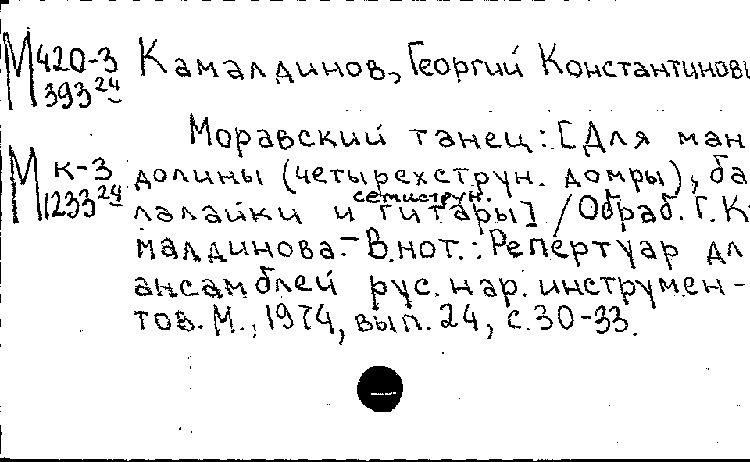 М 420-3
393 24
Камалдинов, Георгий Константинови
Моравский танец: [Для ман
М к-3
1233 24
долины (четырехструн. домры), ба
семиструн.
лалайки и гитары] / Обраб. Г. К
малдинова. – В нот.: Репертуар дл
ансамблей рус. нар. инструмен-
тов. М., 1974, вып. 24, с. 30-33.